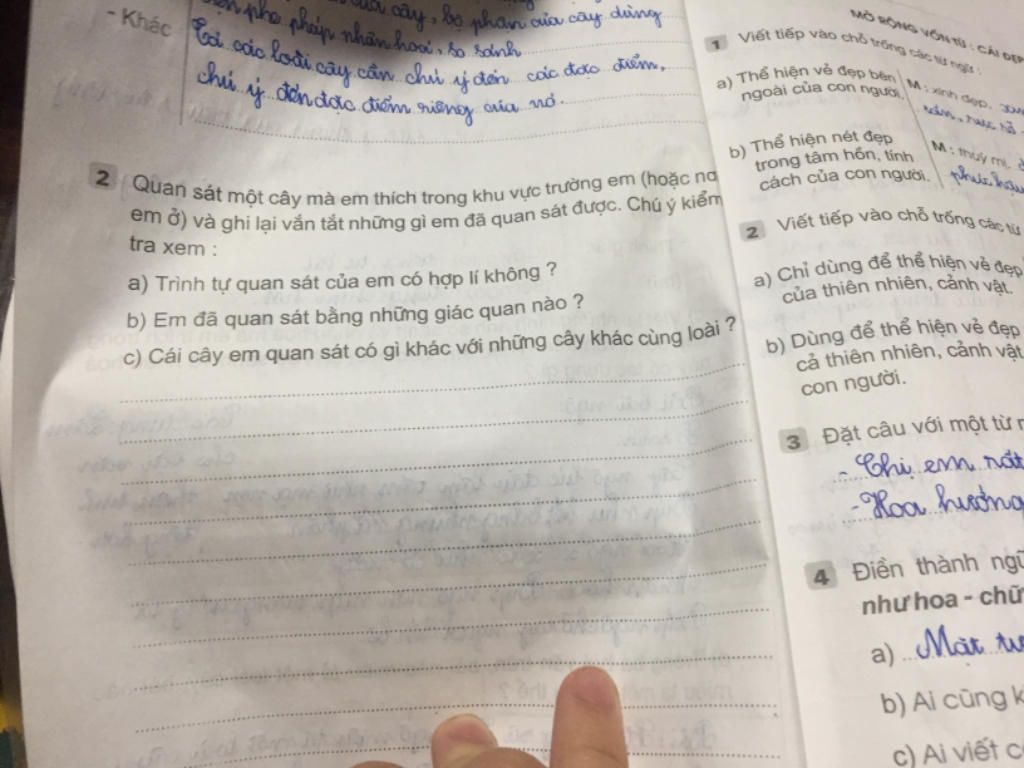 - Khác
pháp nhân hoá, so sánh
cây, bộ phận của cây dùng
Tả các loài cây cần chú ý đến các đặc điểm,
chú ý đến đặc điểm riêng của nó.
2 Quan sát một cây mà em thích trong khu vực trường em (hoặc nơ
em ở) và ghi lại vắn tắt những gì em đã quan sát được. Chú ý kiểm
tra xem :
a) Trình tự quan sát của em có hợp lí không ?
b) Em đã quan sát bằng những giác quan nào ?
c) Cái cây em quan sát có gì khác với những cây khác cùng loài ?
MỞ RỘNG VỐN TỪ : CÁI ĐẸP
1 Viết tiếp vào chỗ trống các từ ngữ :
a) Thể hiện vẻ đẹp bên
ngoài của con người.
M : xinh đẹp,
b) Thể hiện nét đẹp
trong tâm hồn, tính
cách của con người.
M : thuỳ mị,
phúc hậu
2 Viết tiếp vào chỗ trống các từ
a) Chỉ dùng để thể hiện vẻ đẹp
của thiên nhiên, cảnh vật.
b) Dùng để thể hiện vẻ đẹp
cả thiên nhiên, cảnh vật
con người.
3 Đặt câu với một từ n
- Chị em rất
- Hoa hướng
4 Điền thành ngữ
như hoa - chữ
a) Mặt tư
b) Ai cũng k
c) Ai viết c